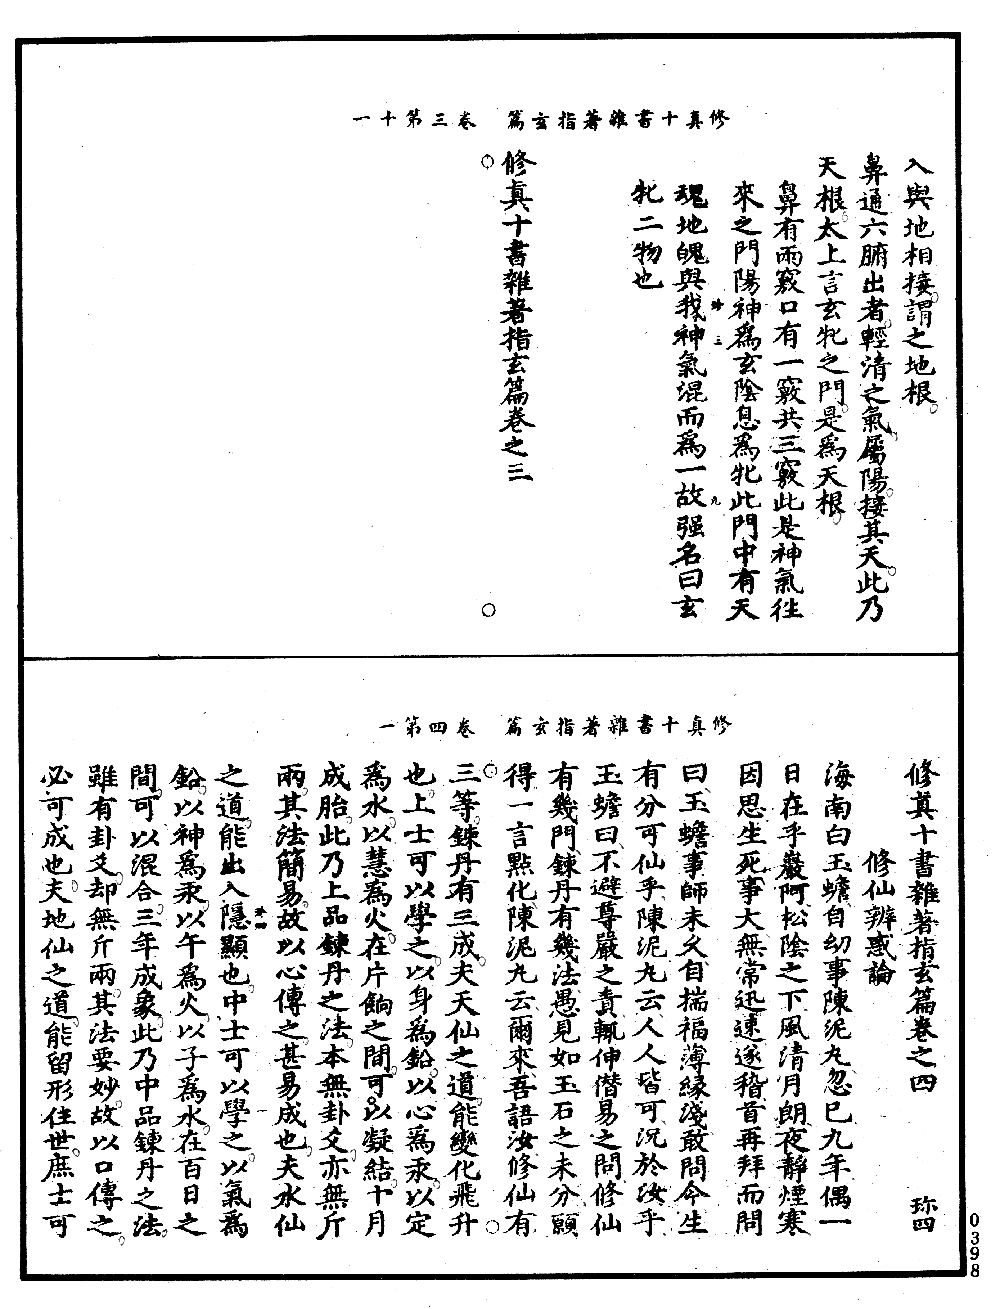 修真十書雜著指玄篇　卷三第十一
入與地相接謂之地根
鼻通六腑出者輕清之氣屬陽接其天此乃
天根太上言玄牝之門是爲天根
鼻有兩竅口有一竅共三竅此是神氣往
來之門陽神爲玄陰息爲牝此門中有天
魂地魄與我神氣混而爲一故强名曰玄
牝二物也
修真十書雜著指玄篇卷之三
修真十書雜著指玄篇　卷四第一
修真十書雜著指玄篇卷之四　珎四
修仙辨惑論
海南白玉蟾自幼事陳泥丸忽已九年偶一
日在乎巖阿松陰之下風清月朗夜靜煙寒
因思生死事大無常迅速遂稽首再拜而問
曰玉蟾事師未久自揣福薄緣淺敢問今生
有分可仙乎陳泥丸云人人皆可況於汝乎
玉蟾曰不避尊嚴之責輒伸僭易之問修仙
有幾門鍊丹有幾法愚見如玉石之未分願
得一言點化陳泥丸云爾來吾語汝修仙有
三等鍊丹有三成夫天仙之道能變化飛升
也上士可以學之以身爲鉛以心爲汞以定
爲水以慧爲火在片餉之間可以凝結十月
成胎此乃上品鍊丹之法本無卦爻亦無斤
兩其法簡易故以心傳之甚易成也夫水仙
之道能出入隱顯也中士可以學之以氣爲
鉛以神爲汞以午爲火以子爲水在百日之
間可以混合三年成象此乃中品鍊丹之法
雖有卦爻却無斤兩其法要妙故以口傳之
必可成也夫地仙之道能留形住世庶士可
0398